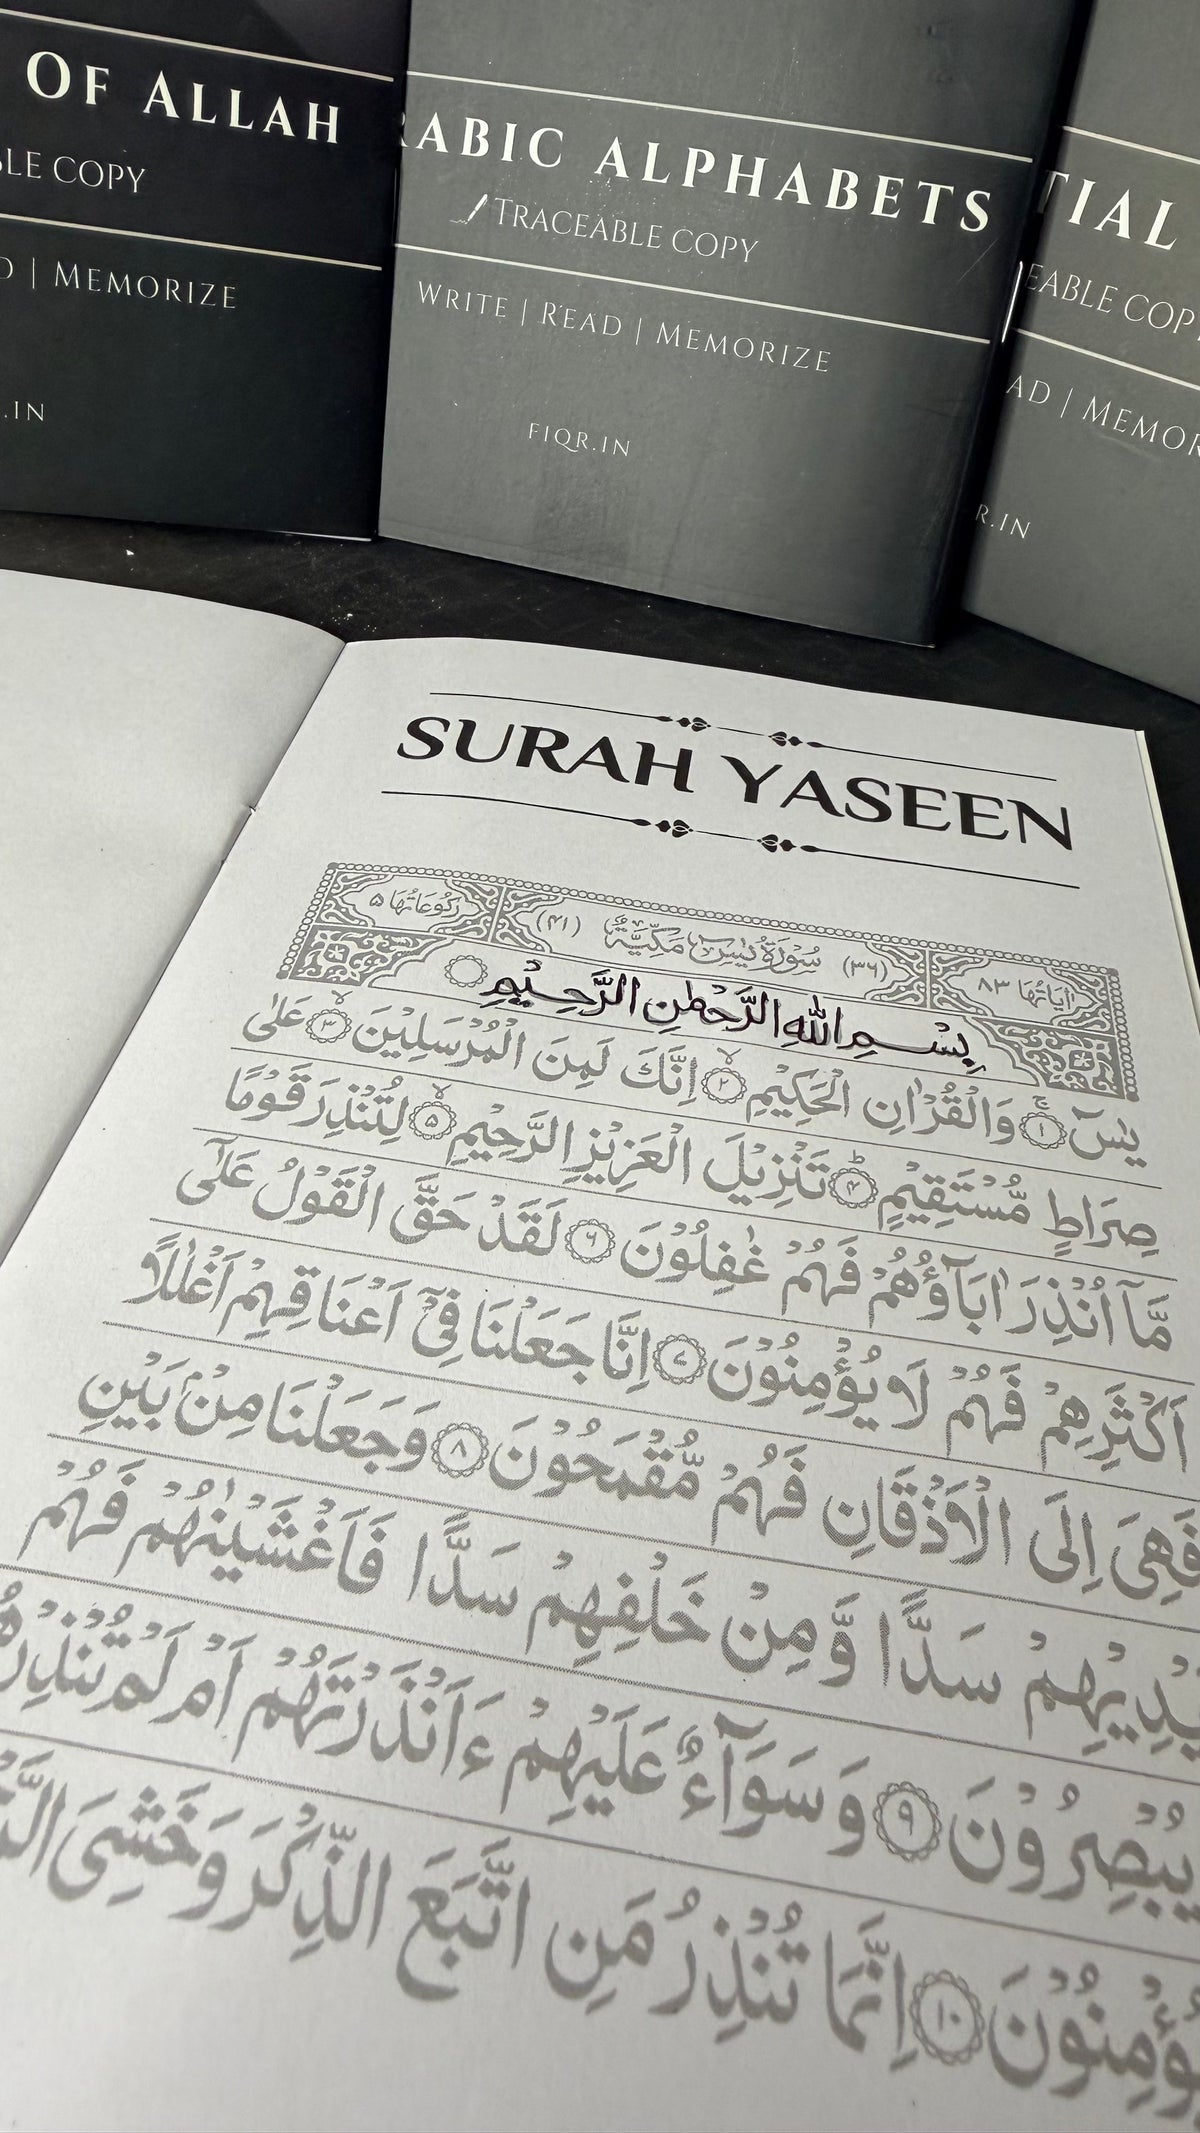 OF ALLAH
COPY
MEMORIZE
.IN
ARABIC ALPHABETS
TRACEABLE COPY
WRITE | READ | MEMORIZE
FIQR.IN
TIAL
EABLE COPY
AD | MEMOR
R.IN
SURAH YASEEN
اٰيَاتُهَا ٨٣ (٣٦) سُوْرَةُ يٰسٓ مَكِّيَّةٌ (٤١) رُكُوْعَاتُهَا ٥
بِسْمِ اللّٰهِ الرَّحْمٰنِ الرَّحِيْمِ
يٰسٓ ﴿١﴾ وَالْقُرْاٰنِ الْحَكِيْمِ ﴿٢﴾ اِنَّكَ لَمِنَ الْمُرْسَلِيْنَ ﴿٣﴾ عَلٰى
صِرَاطٍ مُّسْتَقِيْمٍ ﴿٤﴾ تَنْزِيْلَ الْعَزِيْزِ الرَّحِيْمِ ﴿٥﴾ لِتُنْذِرَ قَوْمًا
مَّآ اُنْذِرَ اٰبَآؤُهُمْ فَهُمْ غٰفِلُوْنَ ﴿٦﴾ لَقَدْ حَقَّ الْقَوْلُ عَلٰٓى
اَكْثَرِهِمْ فَهُمْ لَا يُؤْمِنُوْنَ ﴿٧﴾ اِنَّا جَعَلْنَا فِيْٓ اَعْنَاقِهِمْ اَغْلٰلًا
فَهِيَ اِلَى الْاَذْقَانِ فَهُمْ مُّقْمَحُوْنَ ﴿٨﴾ وَجَعَلْنَا مِنْۢ بَيْنِ
يْدِيْهِمْ سَدًّا وَّمِنْ خَلْفِهِمْ سَدًّا فَاَغْشَيْنٰهُمْ فَهُمْ
يُبْصِرُوْنَ ﴿٩﴾ وَسَوَآءٌ عَلَيْهِمْ ءَاَنْذَرْتَهُمْ اَمْ لَمْ تُنْذِرْهُ
ؤْمِنُوْنَ ﴿١٠﴾ اِنَّمَا تُنْذِرُ مَنِ اتَّبَعَ الذِّكْرَ وَخَشِيَ